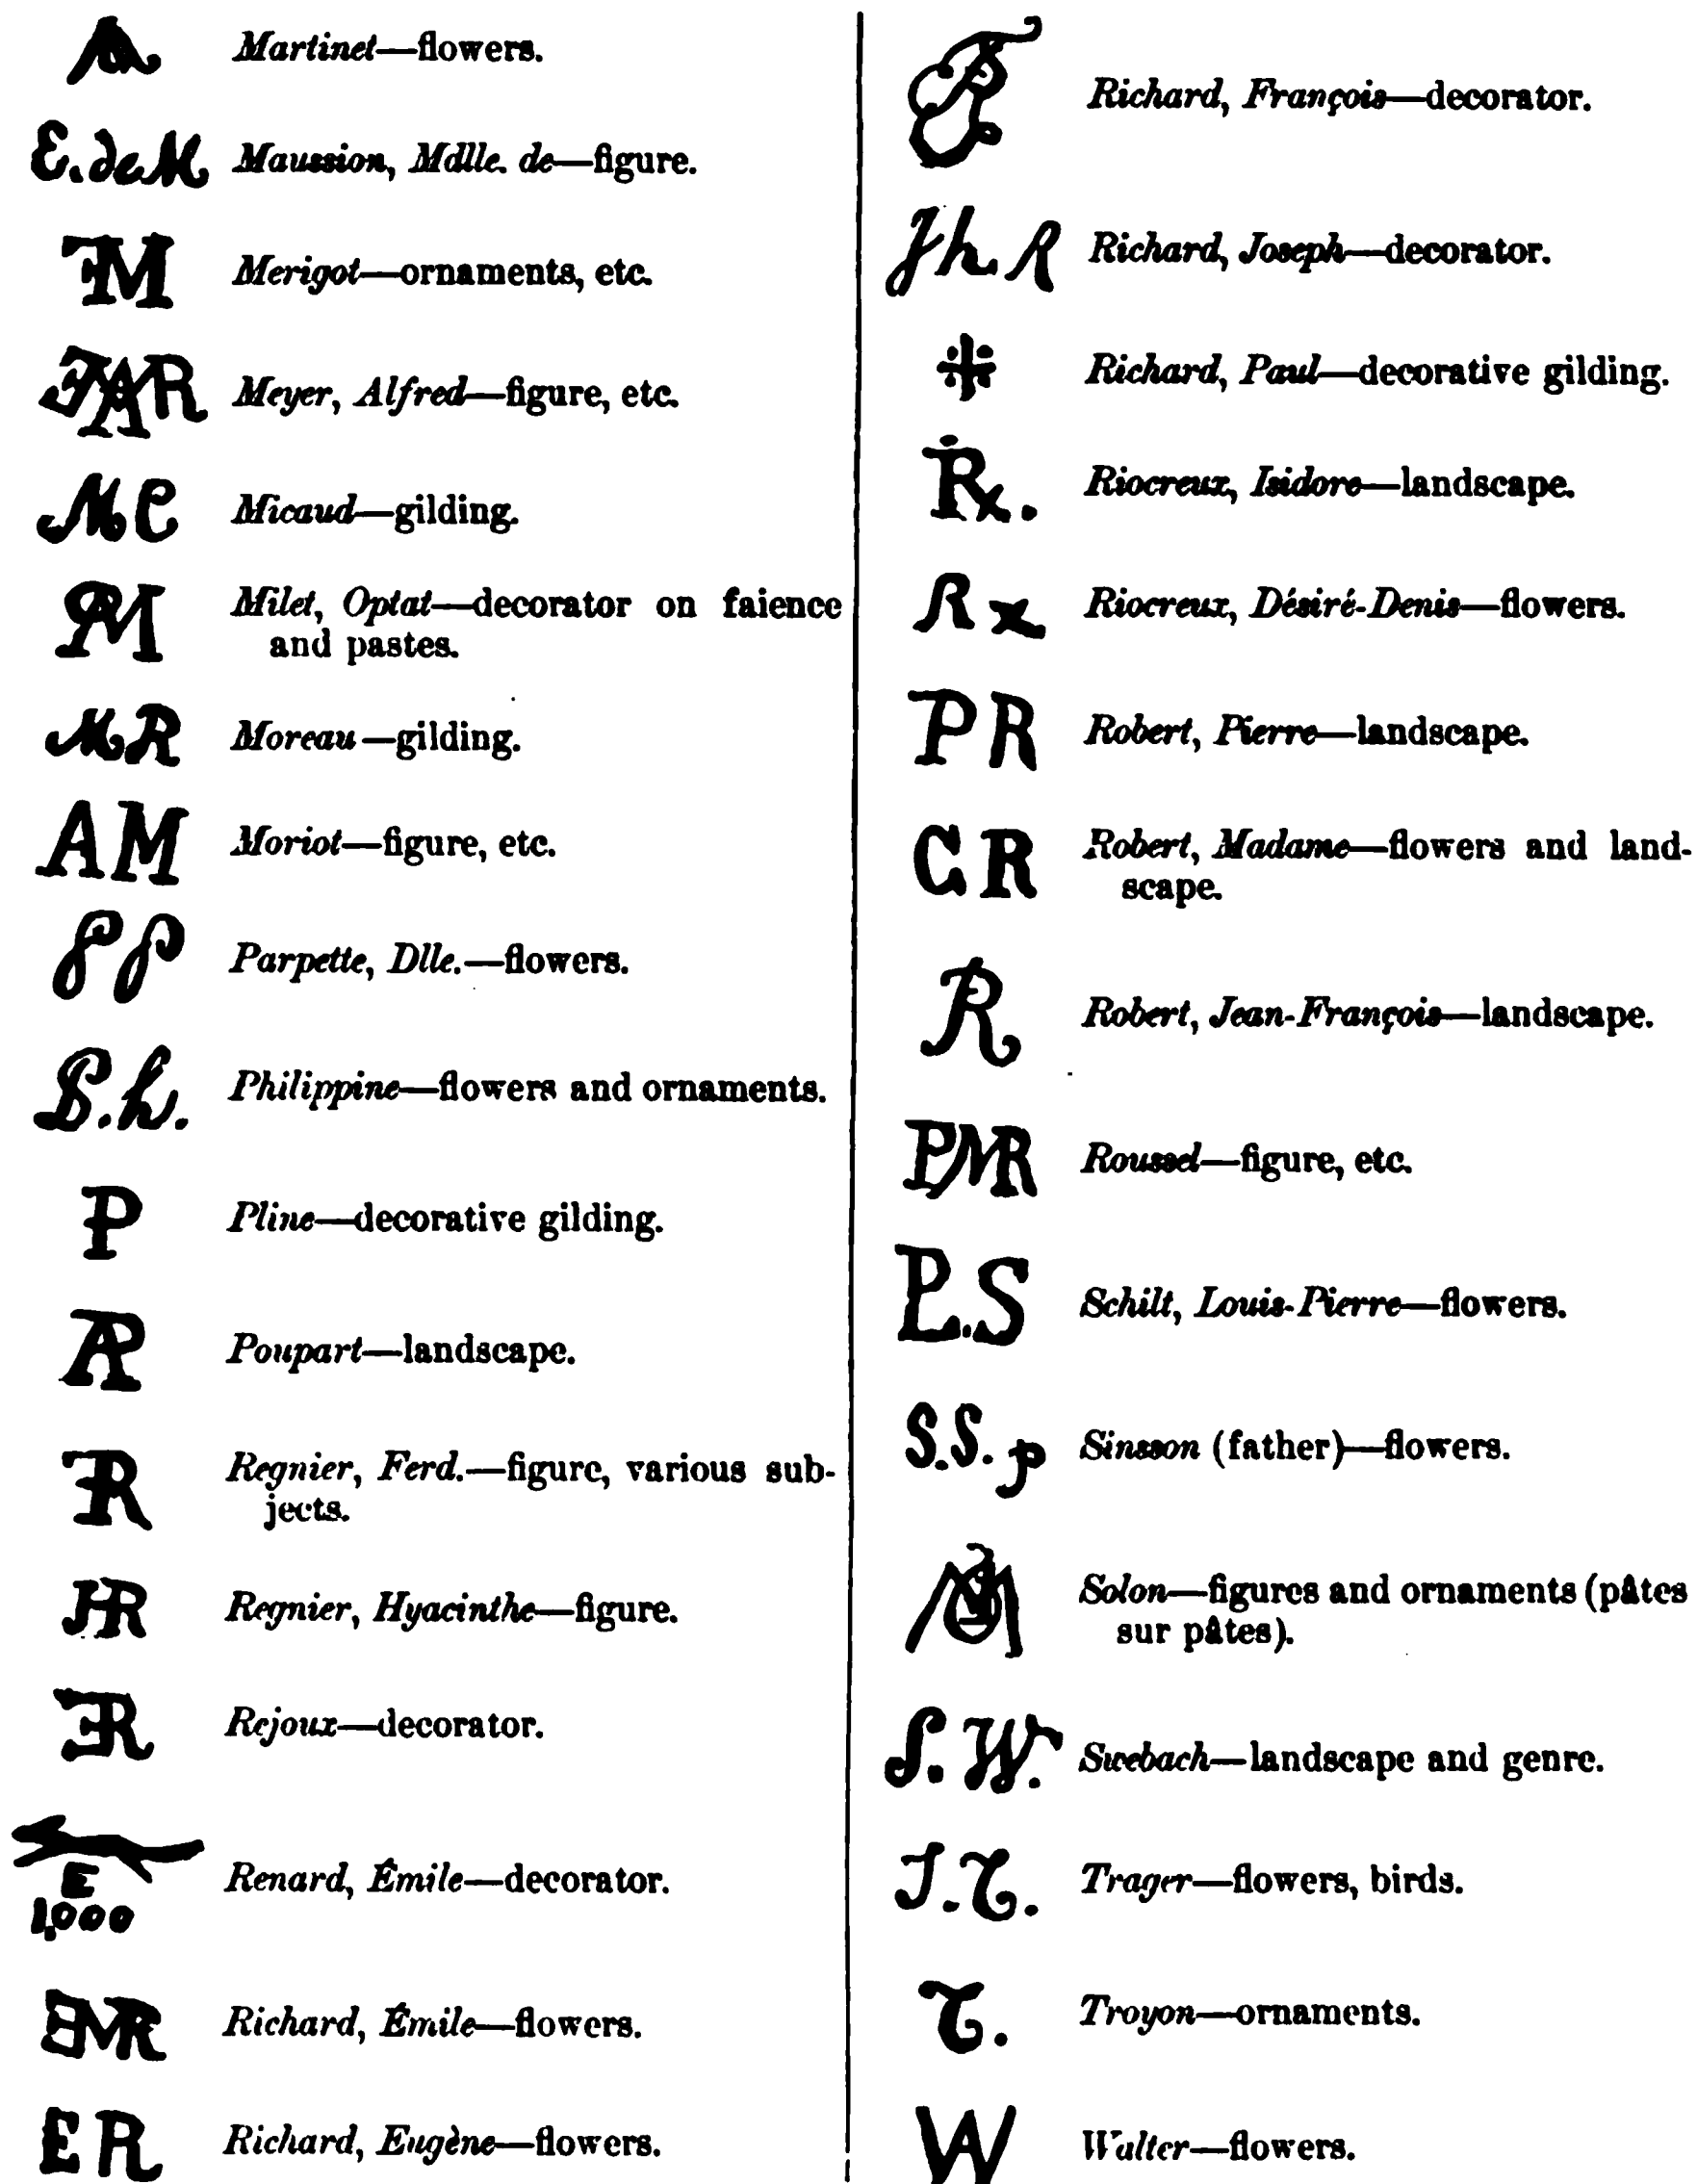 Martinet—flowers.
E. de M Maussion, Mdlle. de—figure.
FM Merigot—ornaments, etc.
Meyer, Alfred—figure, etc.
MC Micaud—gilding.
OM Milet, Optat—decorator on faience
and pastes.
MR Moreau—gilding.
AM Moriot—figure, etc.
PP Parpette, Dlle.—flowers.
P.h. Philippine—flowers and ornaments.
P Pline—decorative gilding.
AP Poupart—landscape.
FR Regnier, Ferd.—figure, various sub-
jects.
HR Regnier, Hyacinthe—figure.
Rejoux—decorator.
E
1,000
Renard, Émile—decorator.
EMR Richard, Émile—flowers.
ER Richard, Eugène—flowers.
Richard, François—decorator.
Jh. R Richard, Joseph—decorator.
Richard, Paul—decorative gilding.
Rx. Riocreux, Isidore—landscape.
Rx Riocreux, Désiré-Denis—flowers.
PR Robert, Pierre—landscape.
CR Robert, Madame—flowers and land-
scape.
R Robert, Jean-François—landscape.
PMR Roussel—figure, etc.
P.S Schilt, Louis-Pierre—flowers.
S.S. p Sinsson (father)—flowers.
Solon—figures and ornaments (pâtes
sur pâtes).
S. W. Swebach—landscape and genre.
J. T. Trager—flowers, birds.
T. Troyon—ornaments.
W Walter—flowers.